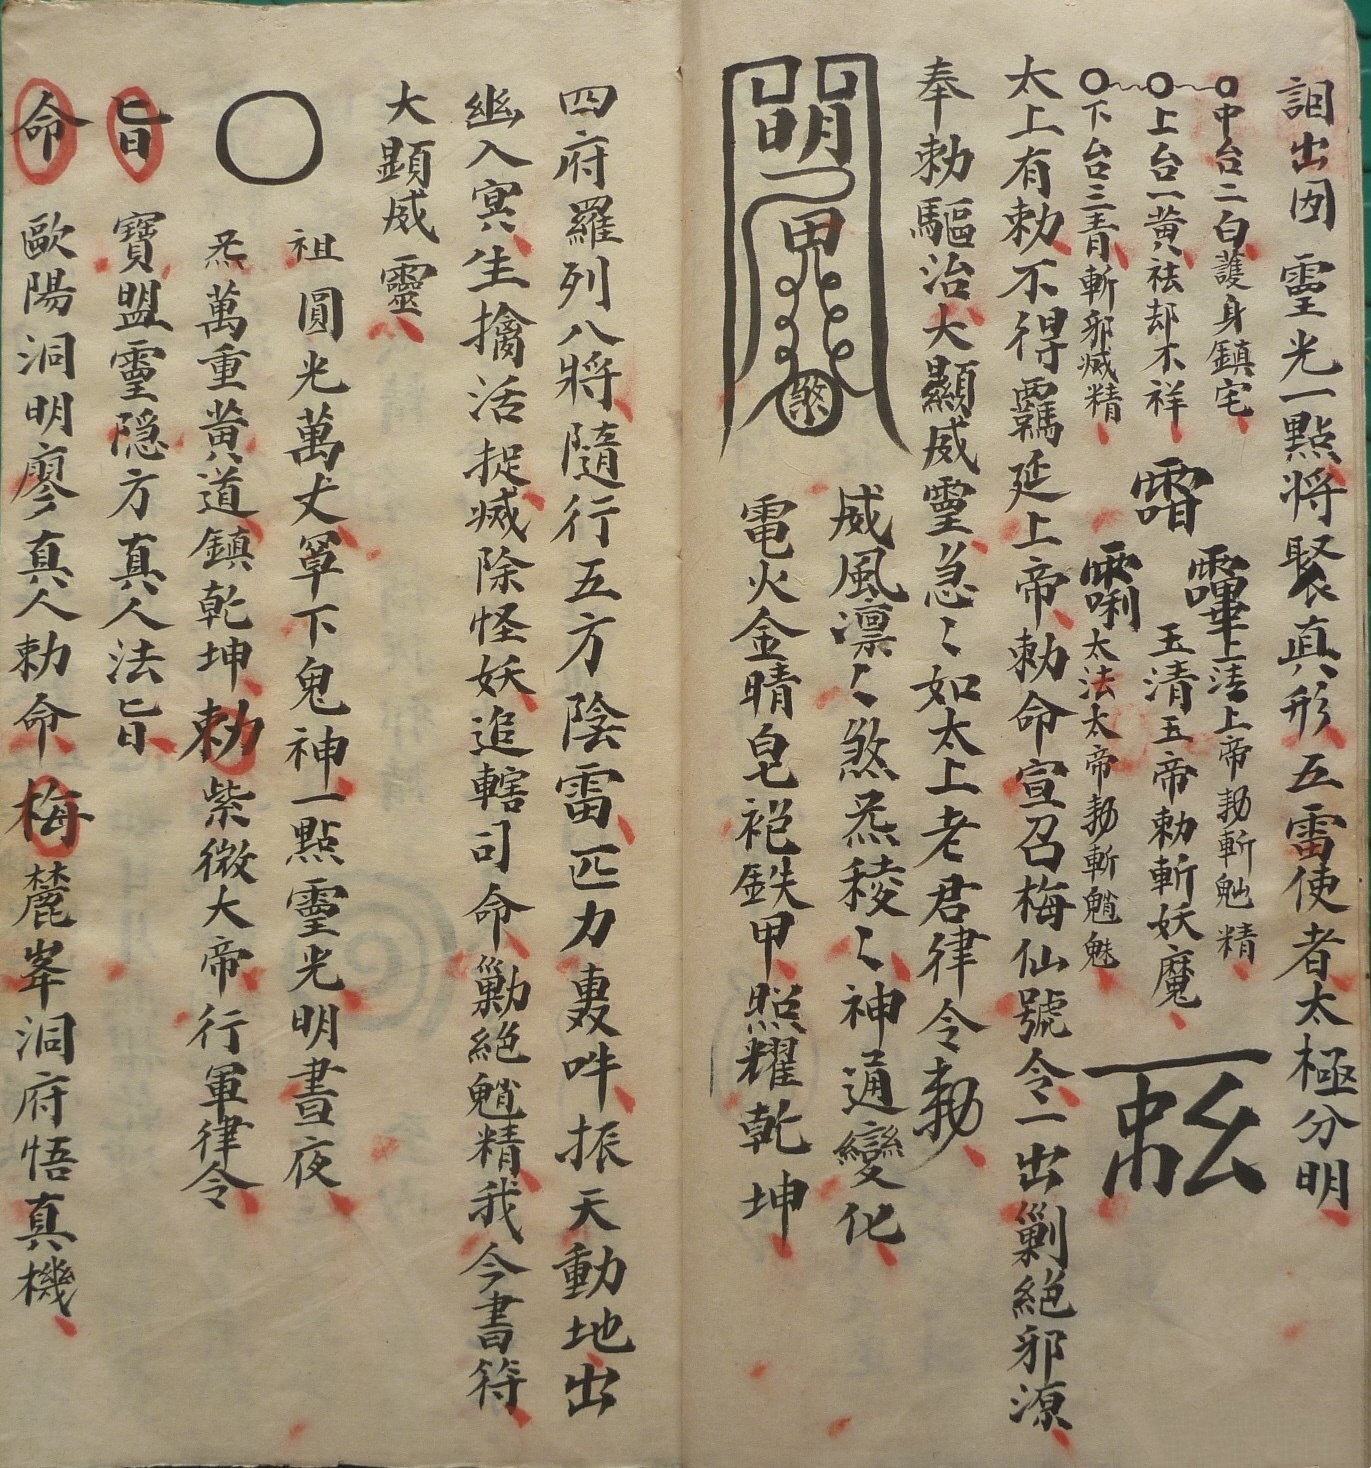 出 靈光一點将聚真形五雷使者太極分明
中台二白護身鎮宅
上台一黄祛却不祥
下台三青斬邪滅精
上清上帝勅斬精
玉清玉帝勅斬妖魔
太清太帝勅斬魈魅
太上有勅不得羈延上帝勅命宣召梅仙號令一出剿絕邪源
奉勅驅治大顯威靈急〻如太上老君律令勅
煞
威風凛〻煞炁稜〻神通變化
電火金睛皂袍鉄甲照耀乾坤
四府羅列八將隨行五方陰雷匹力轟吽振天動地出
幽入冥生擒活捉滅除怪妖追轄司命勦絕魈精我今書符
大顕威靈
祖圓光萬丈罩下鬼神一點靈光明晝夜
炁萬重黄道鎮乾坤勅紫微大帝行軍律令
旨 寶盟靈隐方真人法旨
命 歐陽洞明廖真人勅命梅麓峯洞府悟真機